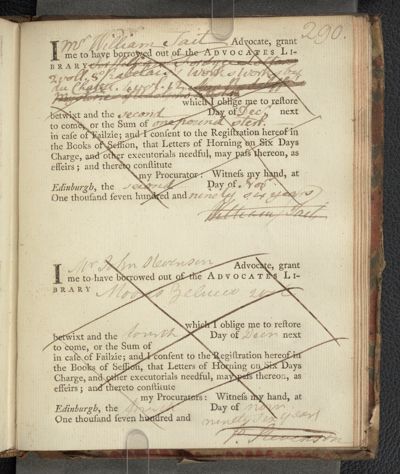 290.
I Mr William Tait Advocate, grant
me to have borrowed out of the ADVOCATES LI-
BRARY
2 voll. 8o Works by
du Chatelet
which I oblige me to restore
betwixt and the second Day of Decr next
to come, or the Sum of one pound ster.
in case of Failzie; and I consent to the Registration hereof in
the Books of Session, that Letters of Horning on Six Days
Charge, and other executorials needful, may pass thereon, as
effeirs; and thereto constitute
my Procurators: Witness my hand, at
Edinburgh, the second Day of Novr
One thousand seven hundred and ninety six years
William Tait
I Mr John Stevenson Advocate, grant
me to have borrowed out of the ADVOCATES LI-
BRARY Moores Zeluco
which I oblige me to restore
betwixt and the fourth Day of Decr next
to come, or the Sum of
in case of Failzie; and I consent to the Registration hereof in
the Books of Session, that Letters of Horning on Six Days
Charge, and other executorials needful, may pass thereon, as
effeirs; and thereto constitute
my Procurators: Witness my hand, at
Edinburgh, the fourth Day of Novr
One thousand seven hundred and ninety six years
J. Stevenson